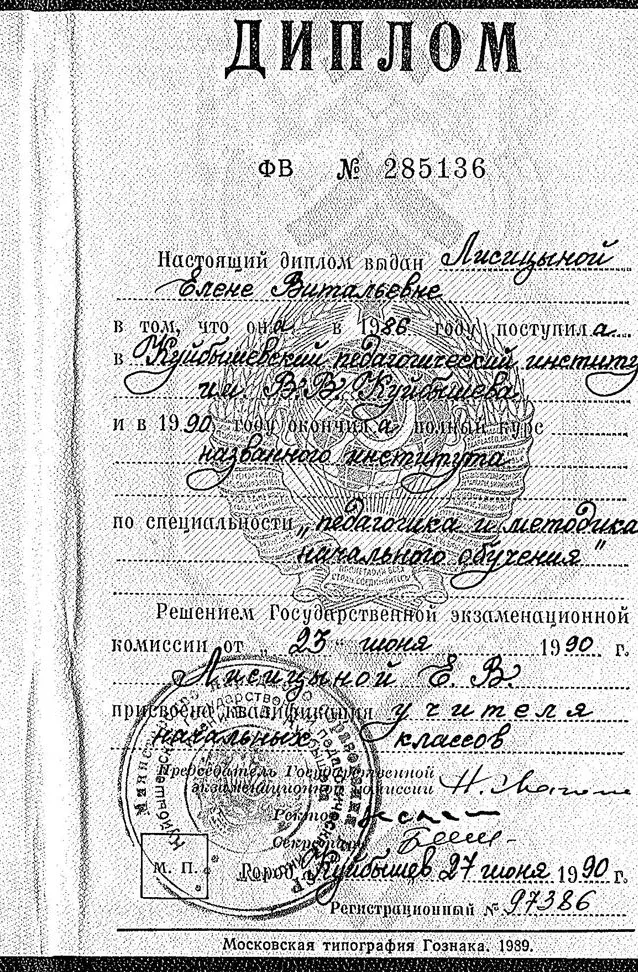 ДИПЛОМ
ФВ № 285136
Настоящий диплом выдан Лисицыной
Елене Витальевне
в том, что она в 1986 году поступила
в Куйбышевский педагогический институт
им. В.В. Куйбышева
и в 1990 году окончила полный курс
названного института
по специальности „педагогика и методика
начального обучения"
ПРОЛЕТАРИИ ВСЕХ
СТРАН, СОЕДИНЯЙТЕСЬ!
Решением Государственной экзаменационной
комиссии от „23" июня 1990 г.
Лисицыной Е. В.
присвоена квалификация учителя
начальных классов
Председатель Государственной
экзаменационной комиссии
Ректор
Секретарь
М. П. Город Куйбышев 27 июня 1990 г.
Регистрационный № 97386
Московская типография Гознака. 1989.